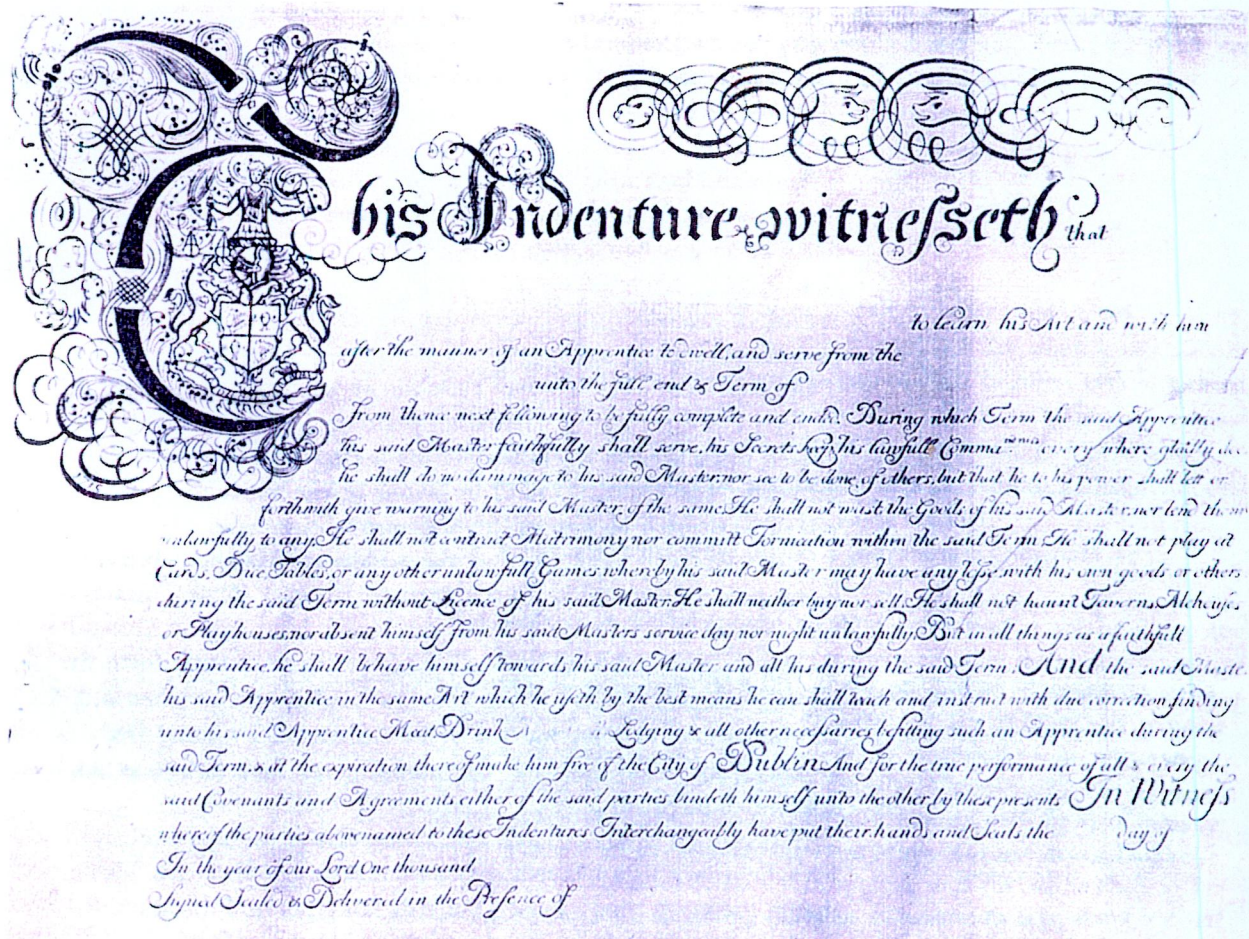 This Indenture witnesseth that
to learn his Art and with him
after the manner of an Apprentice to dwell, and serve from the
unto the full end & Term of
from thence next following to be fully complete and ended. During which Term the said Apprentice
his said Master faithfully shall serve, his Secrets keep, his lawfull Comma every where gladly doe
he shall do no dammage to his said Master nor see to be done of others, but that he to his power shall lett or
forthwith give warning to his said Master of the same. He shall not wast the Goods of his said Master, nor lend them
unlawfully to any. He shall not contract Matrimony nor committ Fornication within the said Term. He shall not play at
Cards, Dice, Tables, or any other unlawfull Games whereby his said Master may have any losse with his own goods or others
during the said Term without Licence of his said Master. He shall neither buy nor sell. He shall not haunt Taverns, Alehouses
or Playhouses, nor absent himself from his said Masters service day nor night unlawfully. But in all things as a faithfull
Apprentice, he shall behave himself towards his said Master and all his during the said Term. And the said Maste
his said Apprentice in the same Art which he useth by the best means he can shall teach and instruct with due correction, finding
unto his said Apprentice Meat, Drink, Lodging & all other necessaries befitting such an Apprentice during the
said Term, & at the expiration thereof make him free of the City of Dublin. And for the true performance of all & every the
said Covenants and Agreements either of the said parties bindeth himself unto the other by these presents. In Witness
whereof the parties abovenamed to these Indentures Interchangeably have put their hands and Seals the day of
In the year of our Lord One thousand
Signed Sealed & Delivered in the Presence of